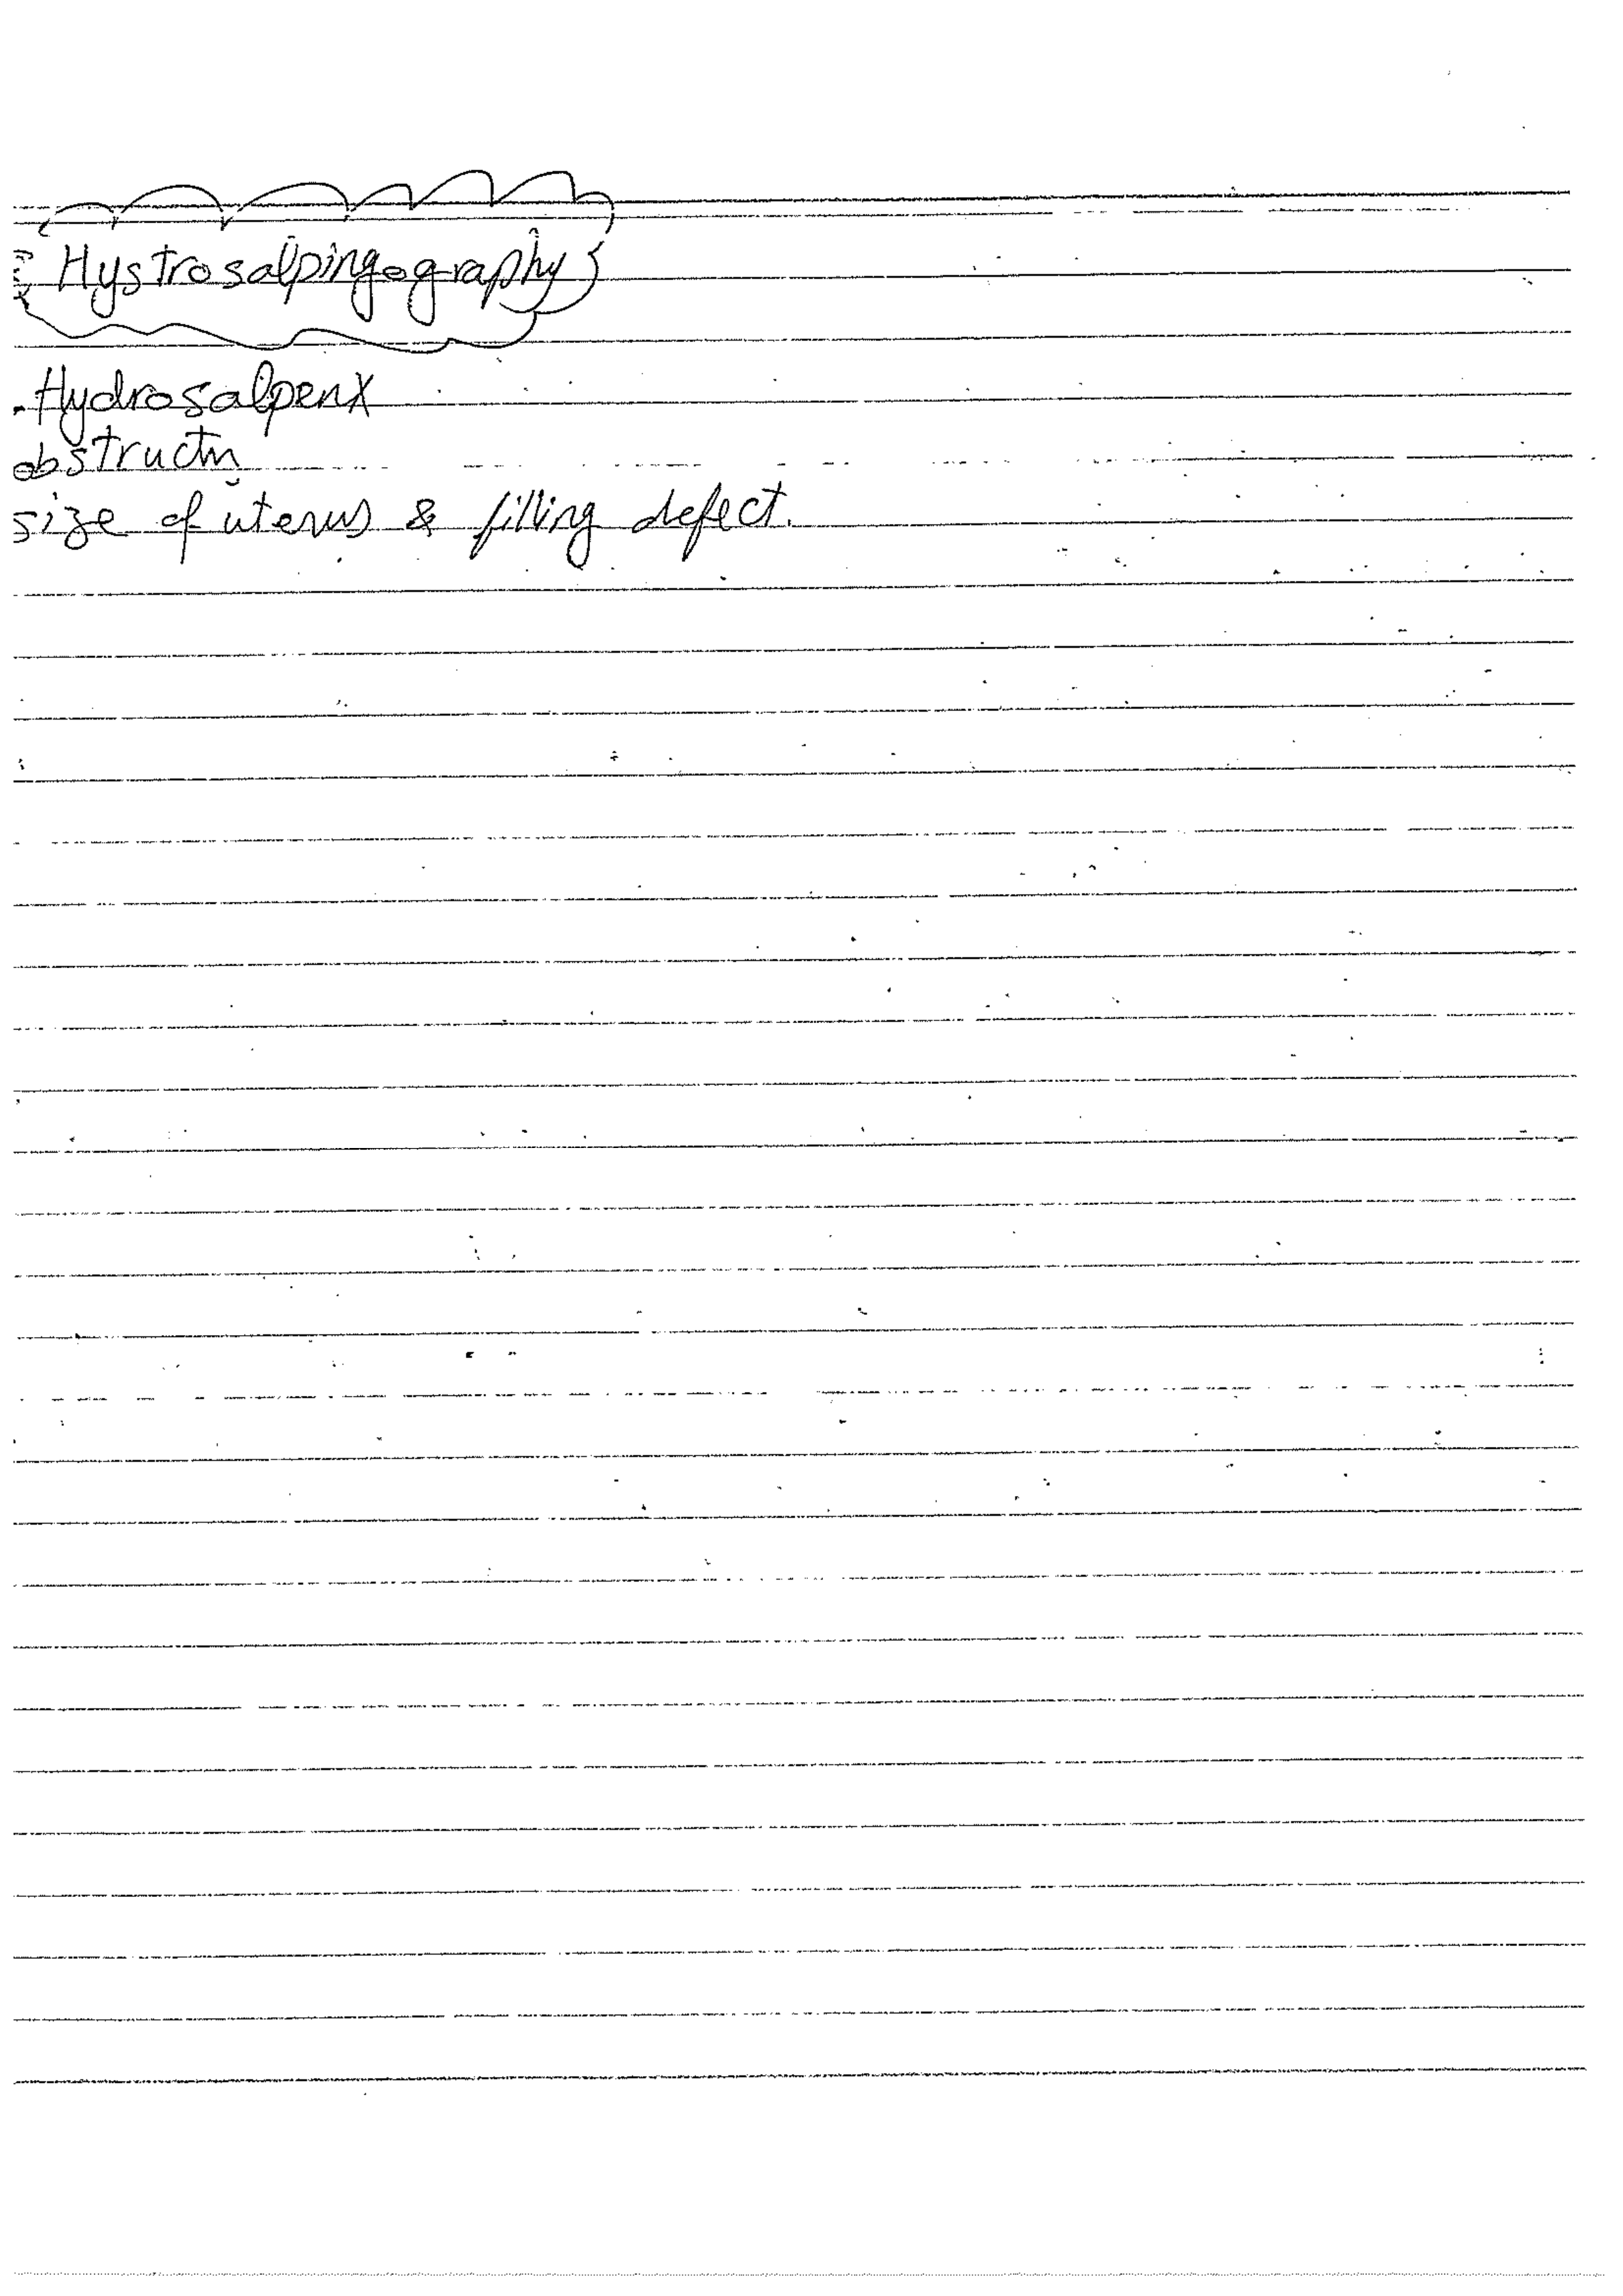 Hystrosalpingography
. Hydrosalpenx
obstructn
size of uterus & filling defect.